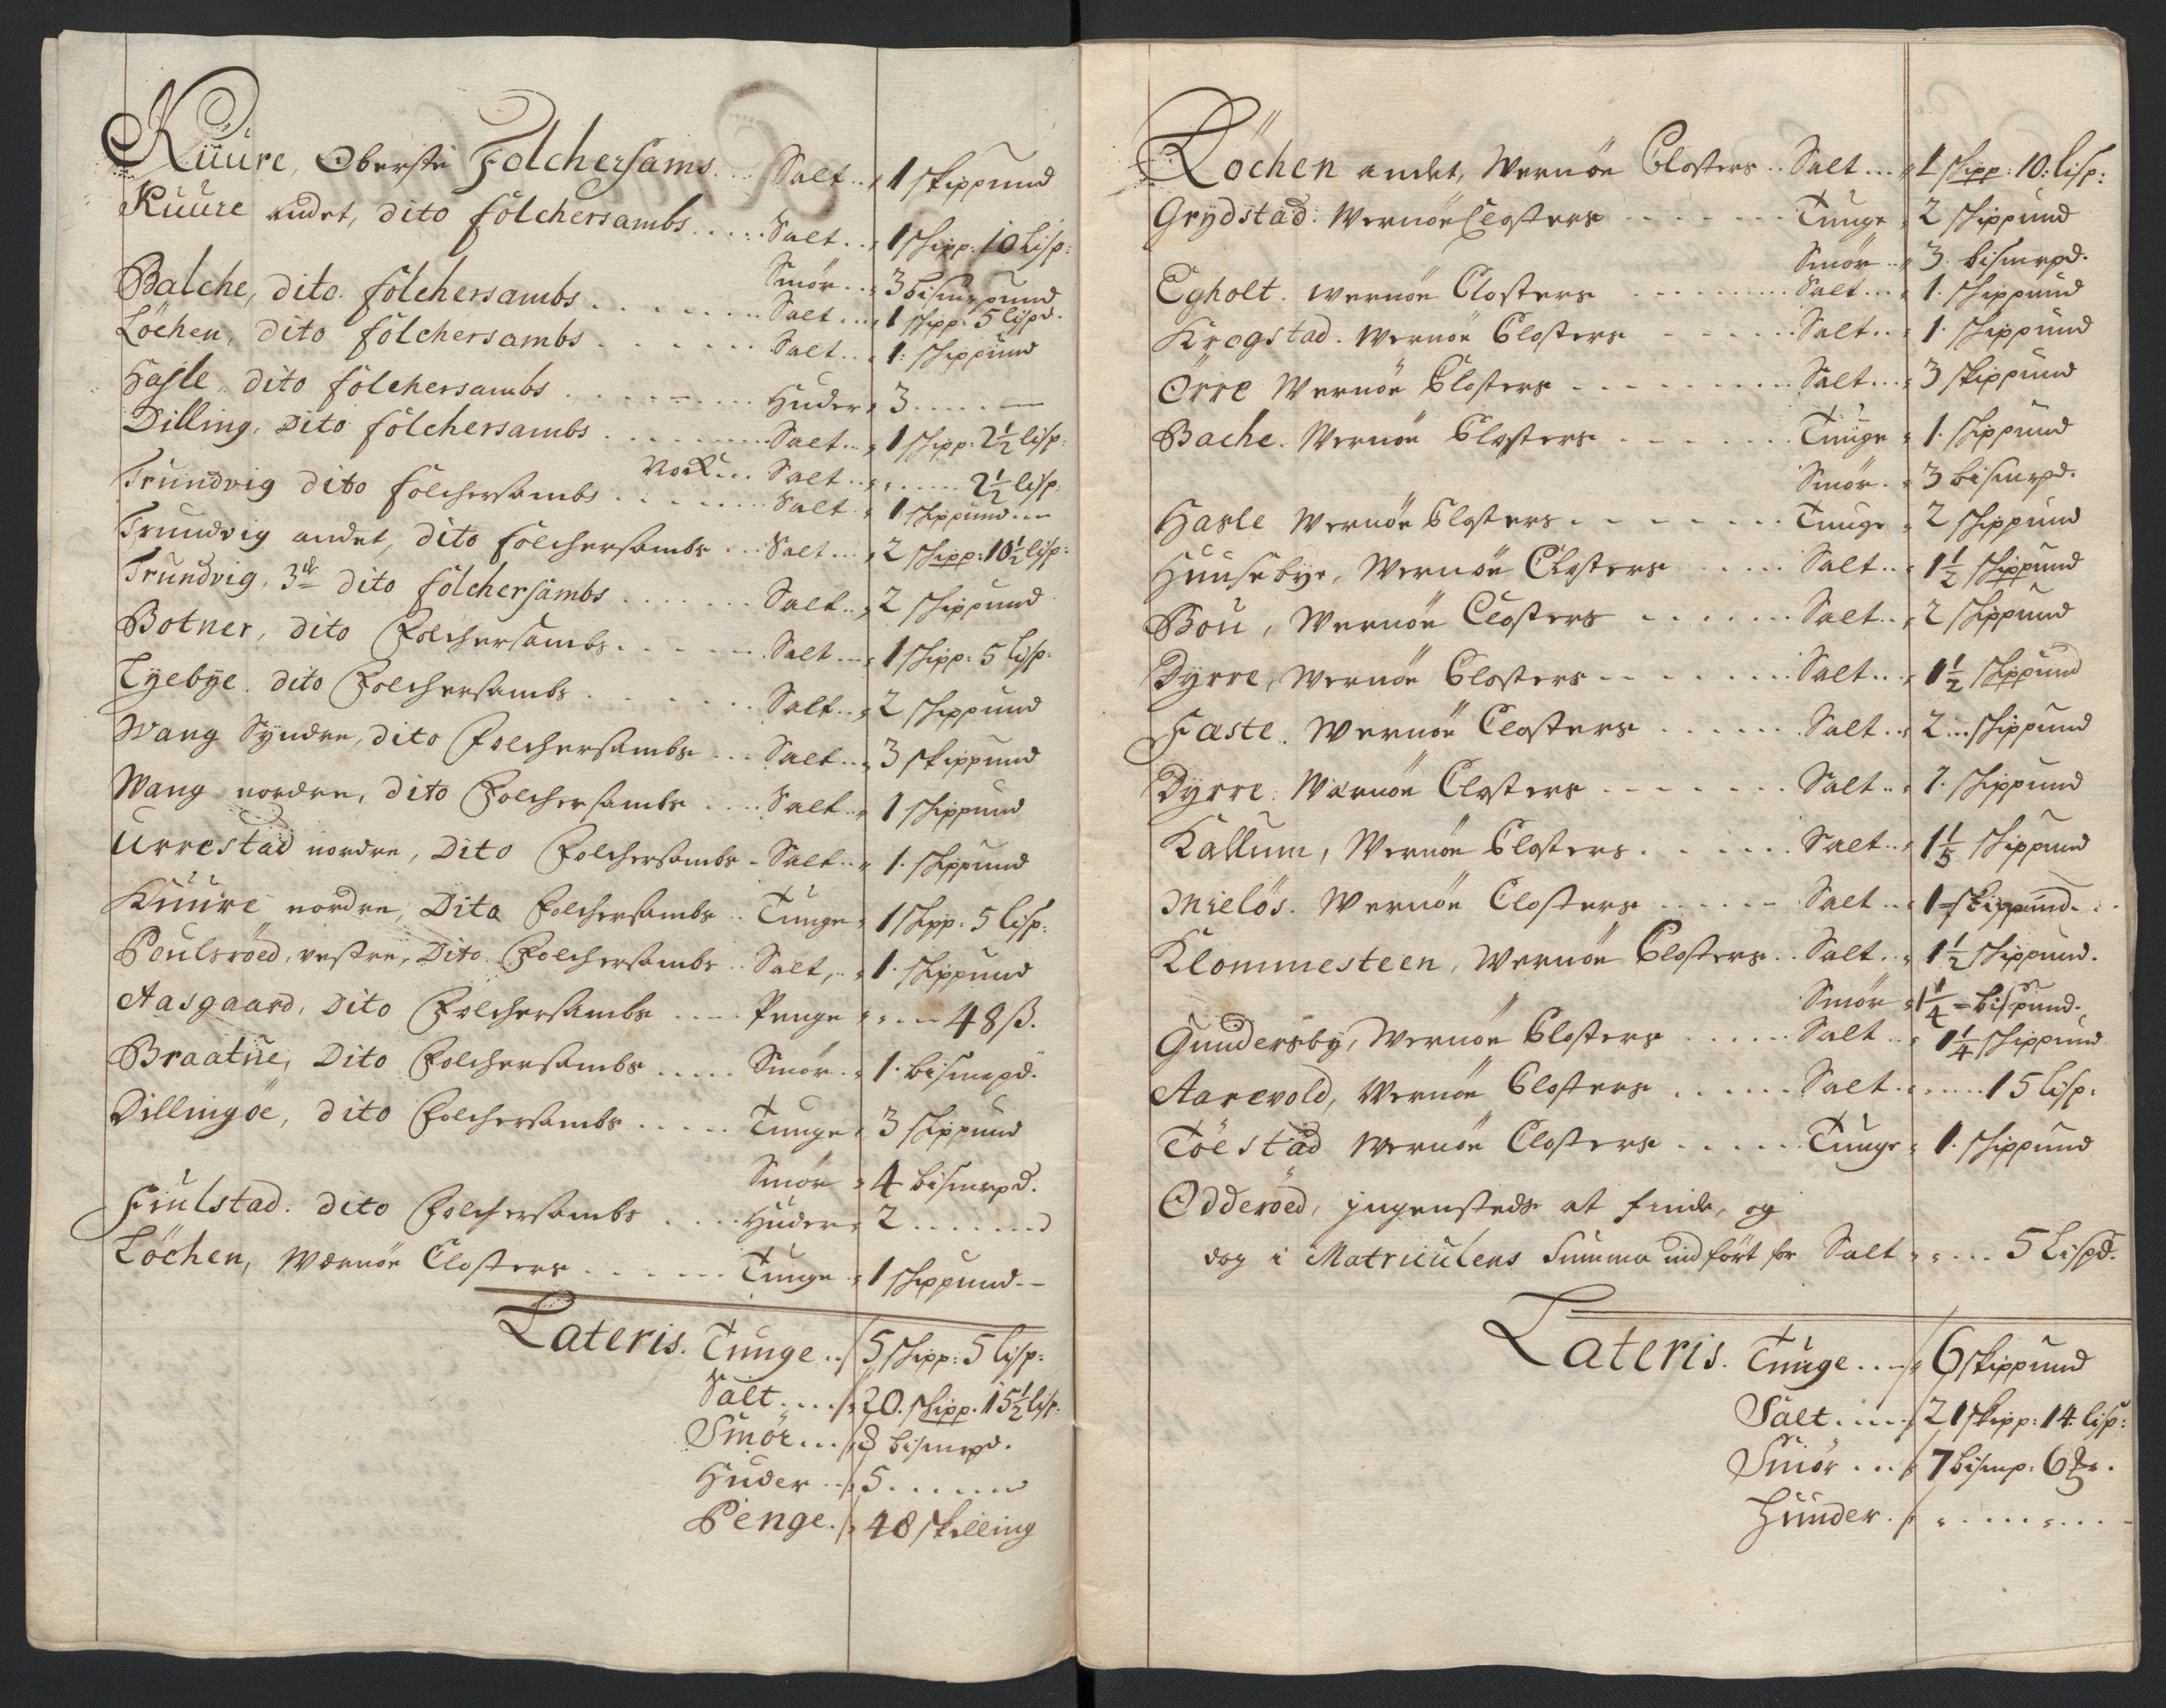 Kuure, Oberste Folchersams... Salt.. „ 1 skippund
Kuure andet, dito folchersambs..... Salt.. „ 1 skipp: 10 Lisp:
Smör.. „ 3 bismrpund
Balche, dito folchersambs....... Salt... „ 1 skipp: 5 lispd.
Löchen, dito folchersambs...... Salt.. „ 1: skippund
Hasle, dito folchersambs....... Huder „ 3.....
Dilling, Dito folchersambs....... Salt.. „ 1 skipp: 2½ lisp:
Salt.. „ ..... 2½ lisp.
Trundvig dito folchersambs....... Salt.. „ 1 skippund...
Trundvig andet, dito folchersambs... Salt... „ 2 skipp: 10½ lisp:
Trundvig, 3die dito folchersambs....... Salt.. „ 2 skippund
Botner, dito Folchersambs...... Salt... „ 1 skipp: 5 lisp.
Tyebye. dito Folchersambs...... Salt.. „ 2 skippund
Wang Syndre, dito Folchersambs... Salt... „ 3 skippund
Wang nordre, dito Folchersambs.... Salt.. „ 1 skippund
Urrestad nordre, Dito Folchersambs - Salt.. „ 1. skippund
Kuure nordre, Dito Folchersambs.. Tunge „ 1 skpp: 5 lisp:
Poulsröed, vestre, Dito Folchersambs.. Salt,.. „ 1. skippund
Aasgaard, Dito Folchersambs.... Penge „ ... 48 ß.
Braatne, Dito Folchersambs..... Smör.. „ 1. bismrpd.
Dillingöe, dito Folchersambs..... Tunge „ 3 skippund
Smör „ 4 bismrpd.
Fiulstad: dito Folchersambs.... Huder „ 2.......
Löchen, Wernöe Closters...... Tunge „ 1 skippund..
Lateris. Tunge.. / 5 skipp: 5 lisp:
Salt.... / 20. skipp. 15½ lisp:
Smör... / 8 bismrpd.
Huder.. / 5......
Penge. / 48 skilling
Löchen andet, Wernöe Closters.. Salt... „ 1 skipp: 10: lisp:
Grydstad: Wernöe Closters....... Tunge „ 2 skippund
Smör.. „ 3. bismrpd.
Egholt. Wernöe Closters........ Salt... „ 1. skippund
Krogstad. Wernöe Closters....... Salt.. „ 1. skippund
Örre Wernöe Closters........ Salt... „ 3 skippund
Bache. Wernöe Closters....... Tunge „ 1. skippund
Smör. „ 3 bismrpd.
Hasle Wernöe Closters....... Tunge „ 2 skippund
Huusebye, Wernöe Closters..... Salt.. „ 1½ skippund
Bou, Wernöe Closters....... Salt.. „ 2 skippund
Dyrre, Wernöe Closters........ Salt... „ 1½ skippund
Faste. Wernöe Closters....... Salt.. „ 2... skippund
Dyrre. Wernöe Closters....... Salt.. „ 1. skippund
Kallum, Wernöe Closters...... Salt.. „ 1⅕ skippund
Mielös. Wernöe Closters...... Salt.. „ 1 skippund..
Klommesteen, Wernöe Closters.. Salt.. „ 1½ skippund.
Smör „ 1¼ bispund.
Gundersby, Wernöe Closters...... Salt.. „ 1¼ skippund
Aarevold, Wernöe Closters...... Salt...... 15 lisp:
Töestad Wernöe Closters...... Tunge „ 1. skippund
Odderöed, ingensteds at finde, og
dog i Matriculens Summa indfört for Salt „ .... 5 Lispd.
Lateris. Tunge... / 6 skippund
Salt..... / 21 skipp: 14. lisp:
Smör... / 7 bismp: 6
Hunder. / „ ........